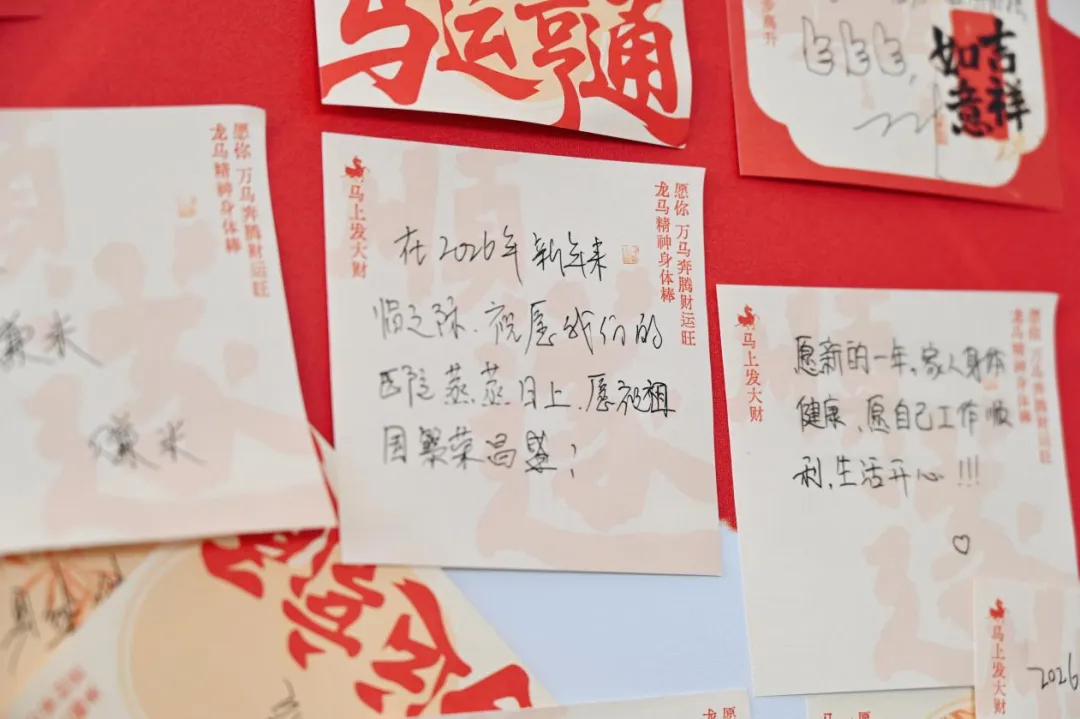 马运亨通
步高升
吉祥
如意
愿你 万马奔腾财运旺
龙马精神身体棒
马上发大财
愿你 万马奔腾财运旺
龙马精神身体棒
在2026年新年来
临之际、祝愿我们的
医院蒸蒸日上、愿祝祖
国繁荣昌盛！
马上发大财
愿你 万马奔腾财运旺
龙马精神身体棒
愿新的一年，家人身体
健康、愿自己工作顺
利，生活开心!!!
♡
马上发大财
2026